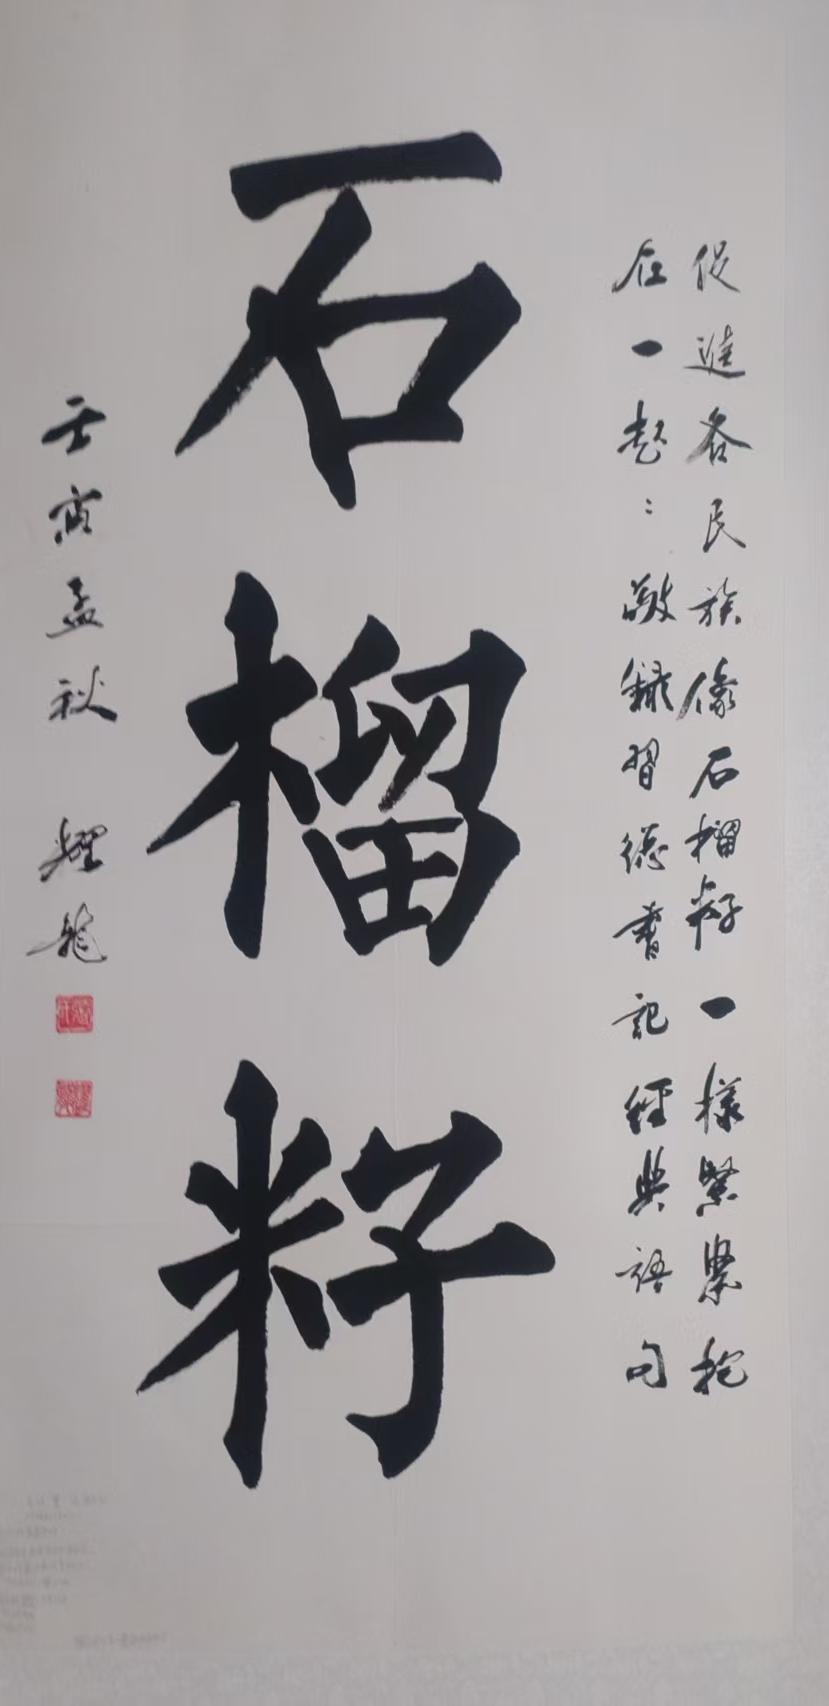 促進各民族像石榴籽一樣緊緊抱
在一起：敬錄習總書記經典語句
石榴籽
壬寅孟秋 耀龍